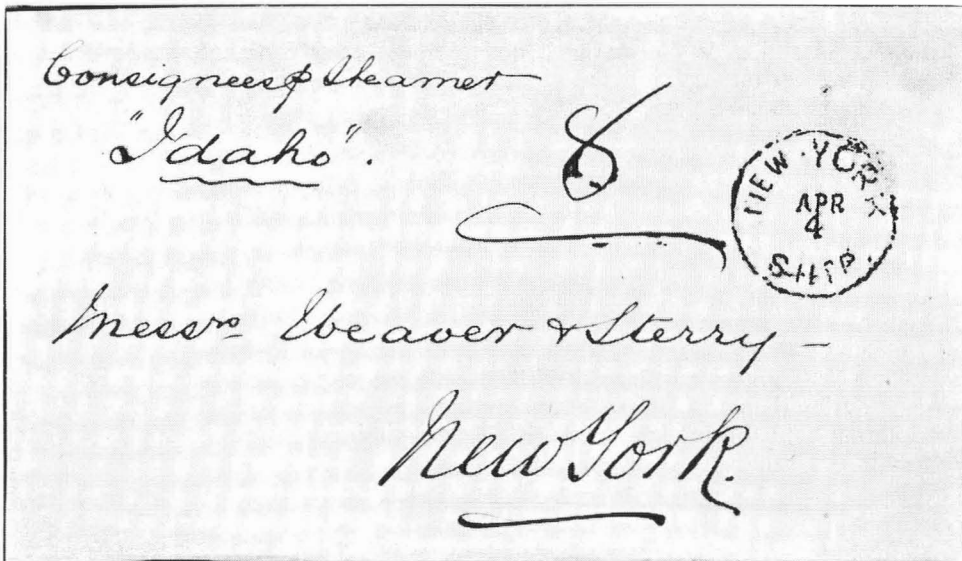 Consignees p Steamer
"Idaho".
8
NEW YORK
APR
4
SHIP
Messrs Weaver & Sterry
New York.